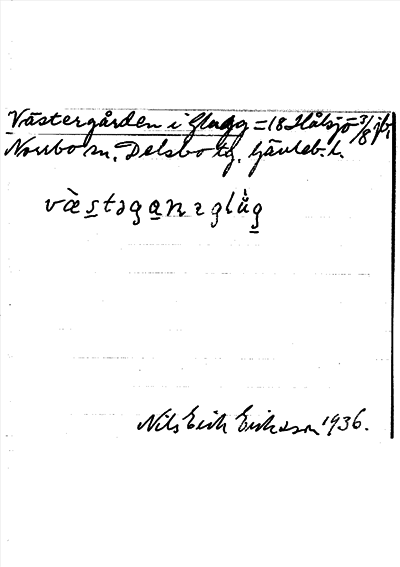 Västergården i Glugg = 18 Hålsjö 3/8 jb,
Norrbo sn, Delsbo tg. Gävleb. l.
væ̀stəganɿglùg
Nils Erik Eriksson 1936.